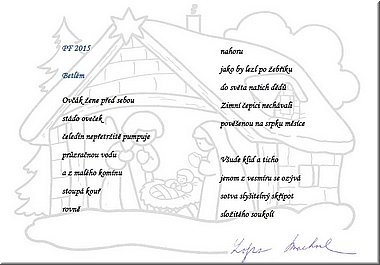 PF 2015
Betlém
Ovčák žene před sebou
stádo oveček
čeledín nepřetržitě pumpuje
průzračnou vodu
a z malého komínu
stoupá kouř
rovně
nahoru
jako by lezl po žebříku
do světa našich dědů
Zimní čepici nechávali
pověšenou na srpku měsíce
Všude klid a ticho
jenom z vesmíru se ozývá
sotva slyšitelný skřípot
složitého soukolí